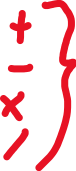 +
−
×
/
}